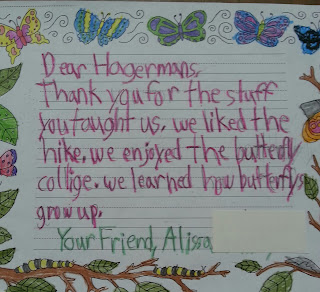 Dear Hagermans,
Thank you for the stuff
you taught us. we liked the
hike. we enjoyed the butterfly
collige. we learned how butterflys
grow up.
Your Friend, Alissa